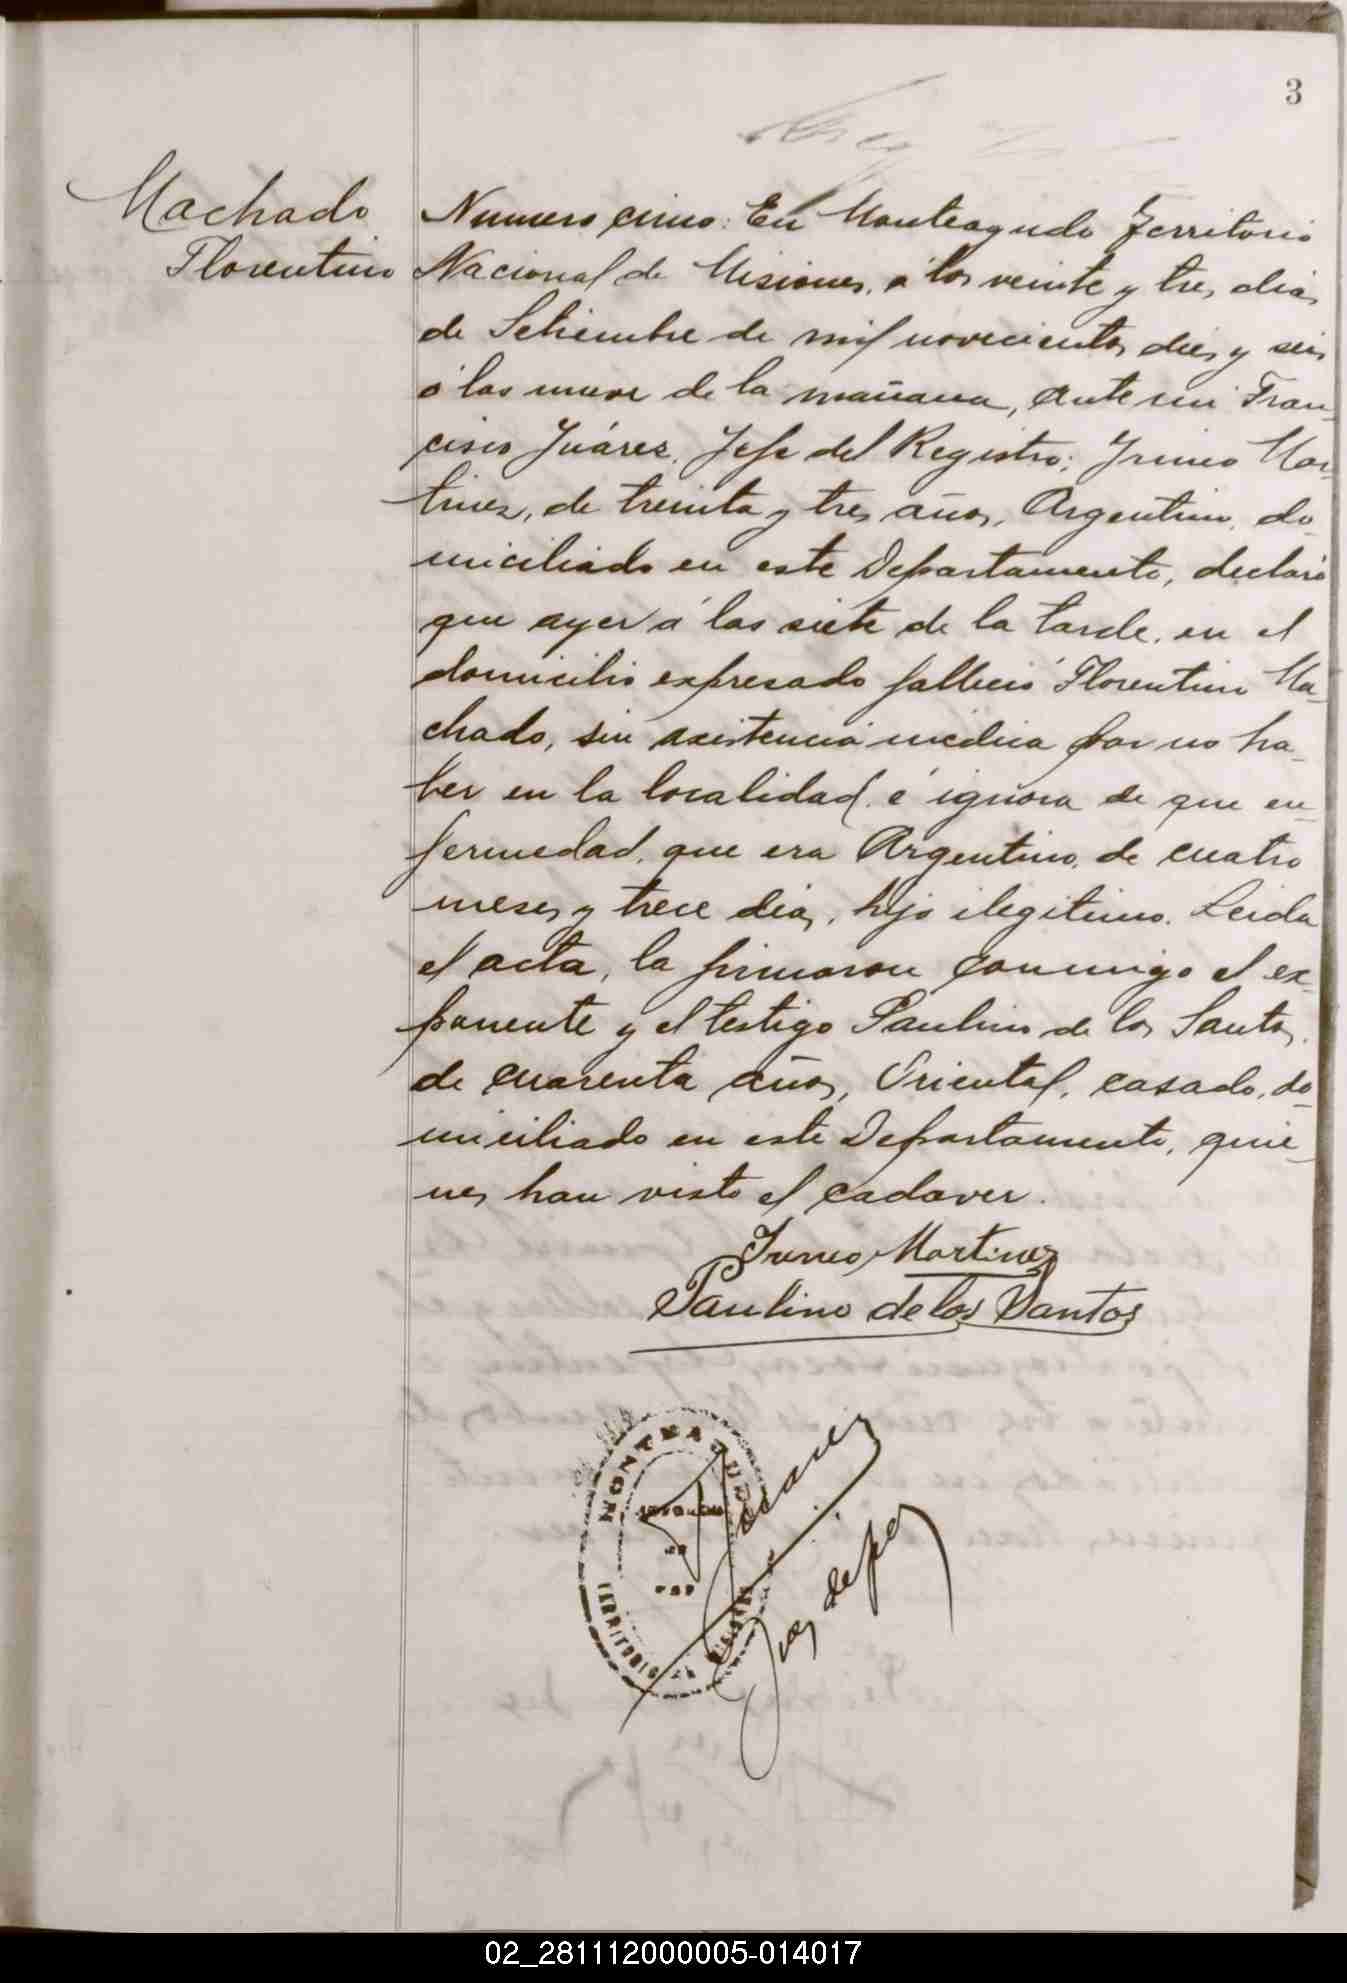 3
Machado
Florentino
Numero cinco: En Monteagudo Territorio
Nacional de Misiones, á los veinte y tres dias
de Setiembre de mil novecientos diez y seis
á las nueve de la mañana, ante mi Fran-
cisco Juárez, Jefe del Registro; Irineo Mar-
tinez, de treinta y tres años, Argentino, do-
miciliado en este Departamento, declaró
que ayer á las siete de la tarde, en el
domicilio expresado falleció Florentino Ma-
chado, sin asistencia medica por no ha-
ber en la localidad é ignora de que en-
fermedad, que era Argentino, de cuatro
meses y trece dias, hijo ilegitimo. Leida
el acta, la firmaron conmigo el ex-
ponente y el testigo Paulino de los Santos,
de cuarenta años, Oriental, casado, do-
miciliado en este Departamento, quie-
nes han visto el cadaver.
Irineo Martinez
Paulino de los Santos
MONTEAGUDO
JUZGADO
DE
PAZ
TERRITORIO DE MISIONES
Juarez
Juez de paz
02_281112000005-014017